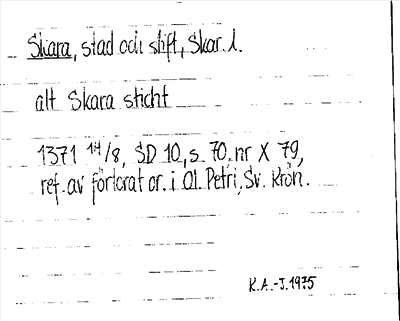 Skara, stad och stift, Skar. l.
alt Skara sticht
1371 14/8, SD 10, s. 70. nr X 79,
ref. av förlorat or. i Ol. Petri, Sv. Krön.
K.A.-J. 1975